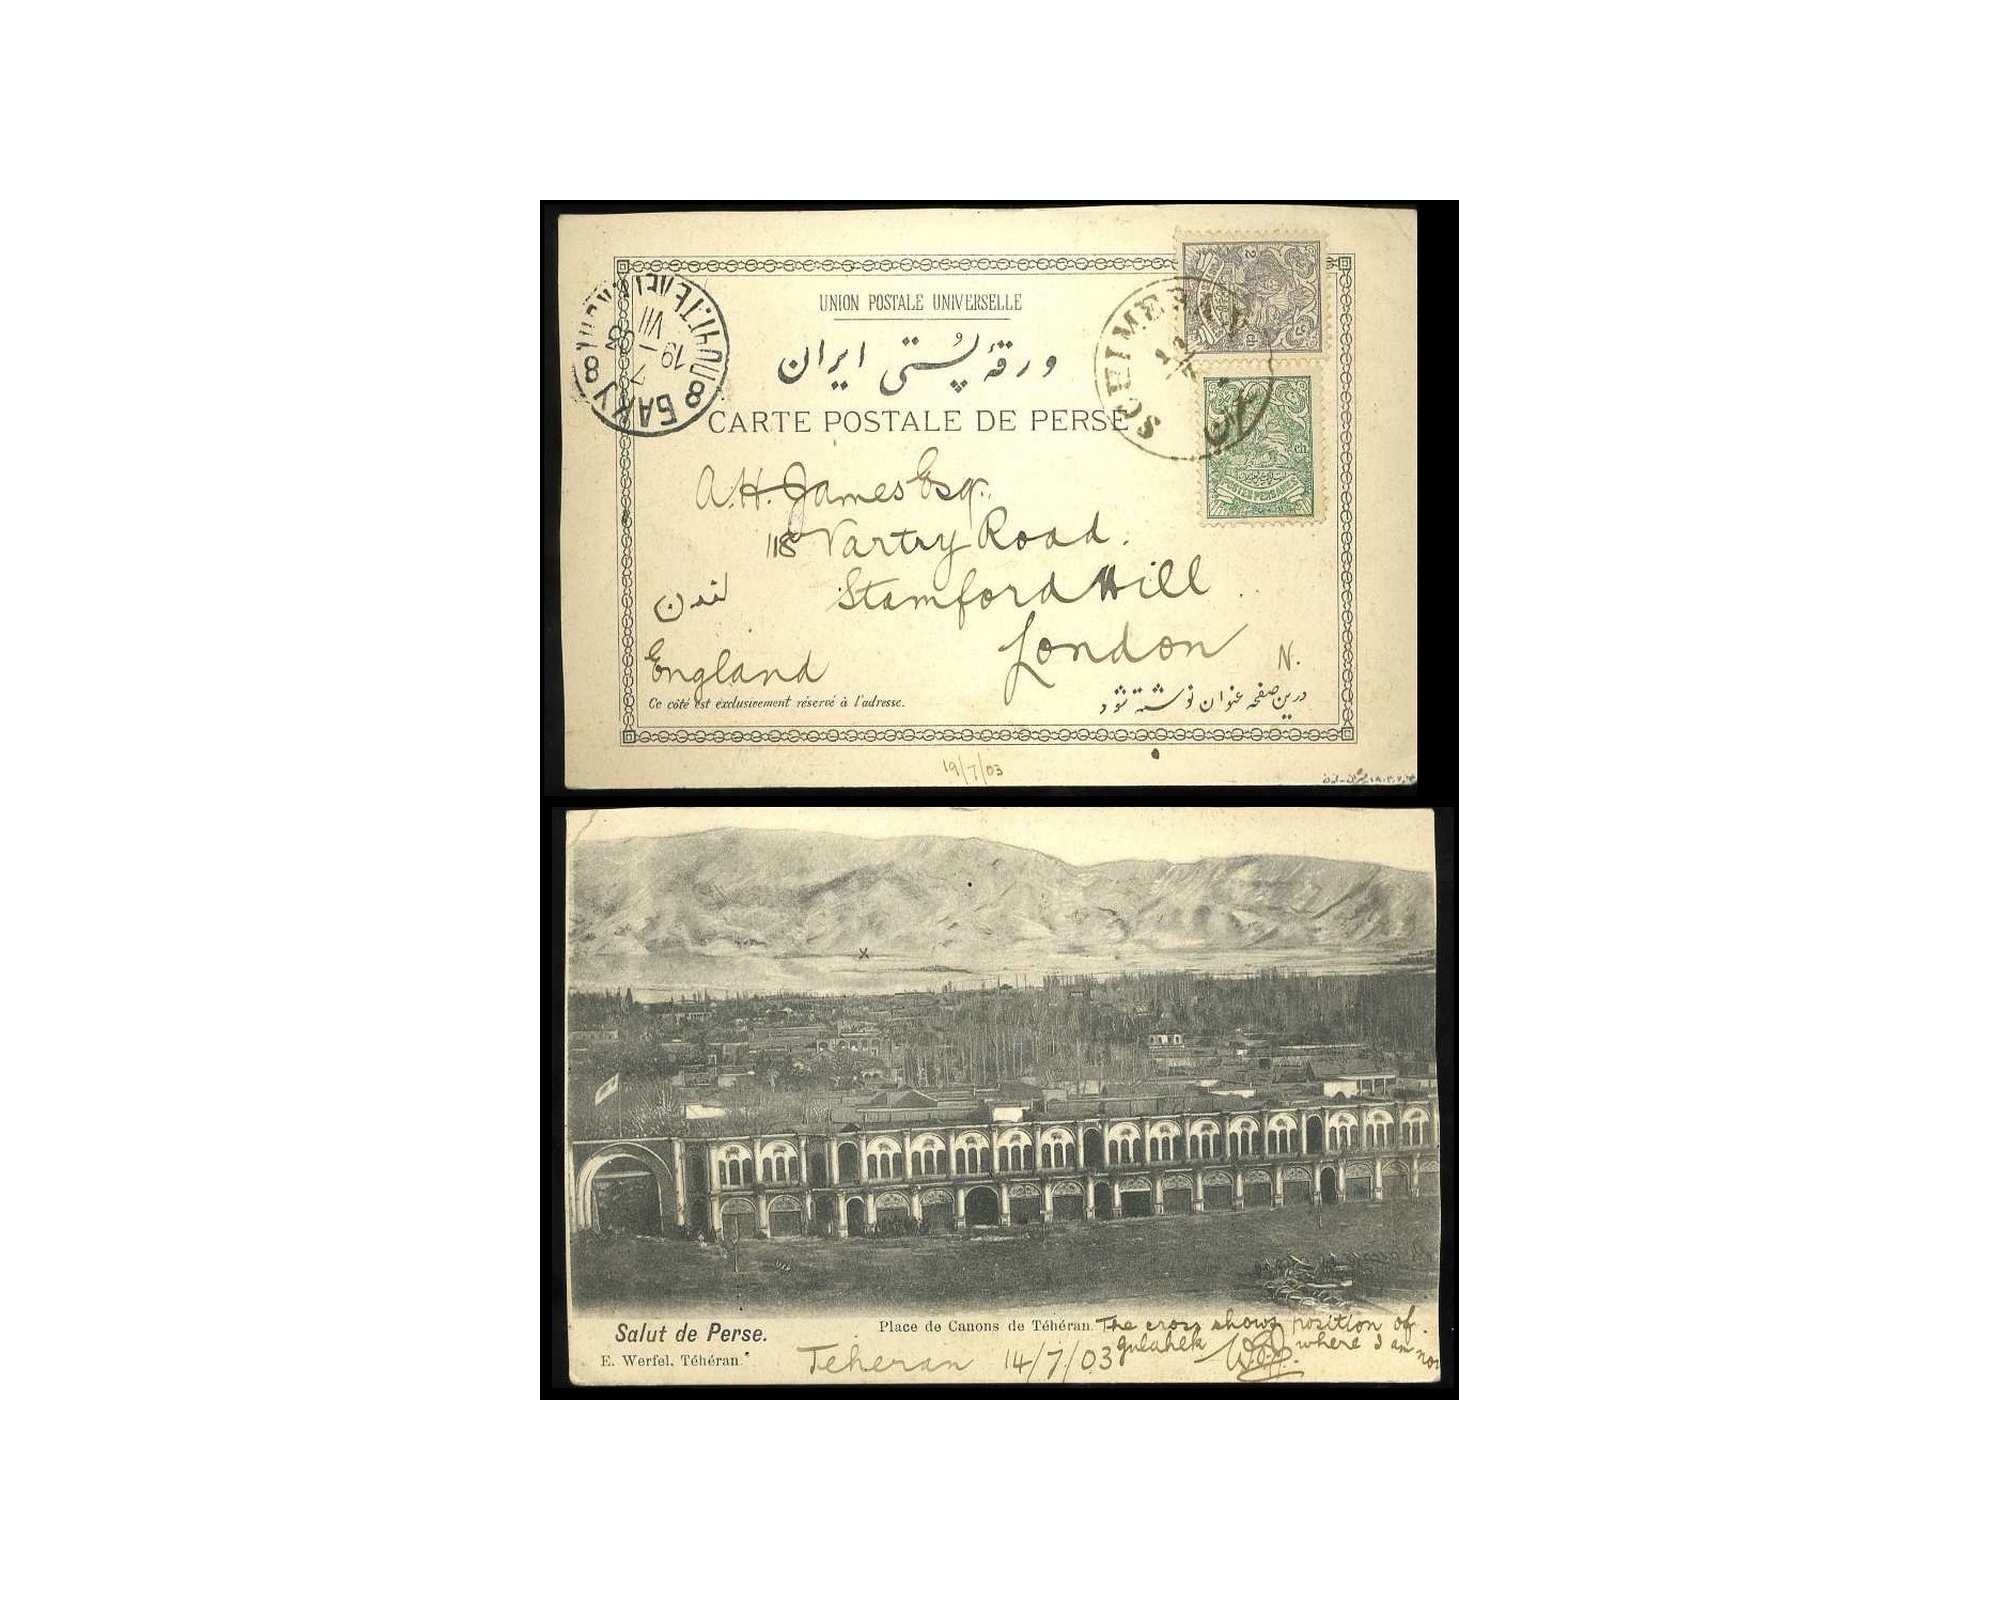 UNION POSTALE UNIVERSELLE
ورقهٔ پُستی ایران
CARTE POSTALE DE PERSE
БАКУ
19 VII 03
SCHIMERAN
POSTES PERSANES
A.H. James Esq.
118 Vartry Road.
Stamford Hill
لندن
London N.
England
Ce côté est exclusivement réservé à l'adresse.
درین صفحه عنوان نوشته شود
19/7/03
Salut de Perse.
Place de Canons de Téhéran.
The cross shows position of
gulahek where I am now
E. Werfel, Téhéran.
Teheran 14/7/03